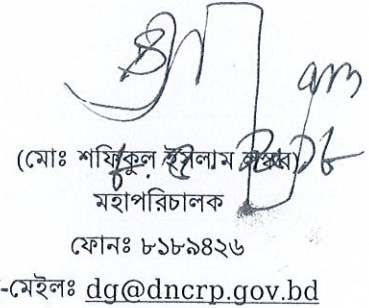 (মোঃ শফিকুল ইসলাম
মহাপরিচালক
ফোনঃ ৮১৮৯৪২৬
-মেইলঃ dg@dncrp.gov.bd